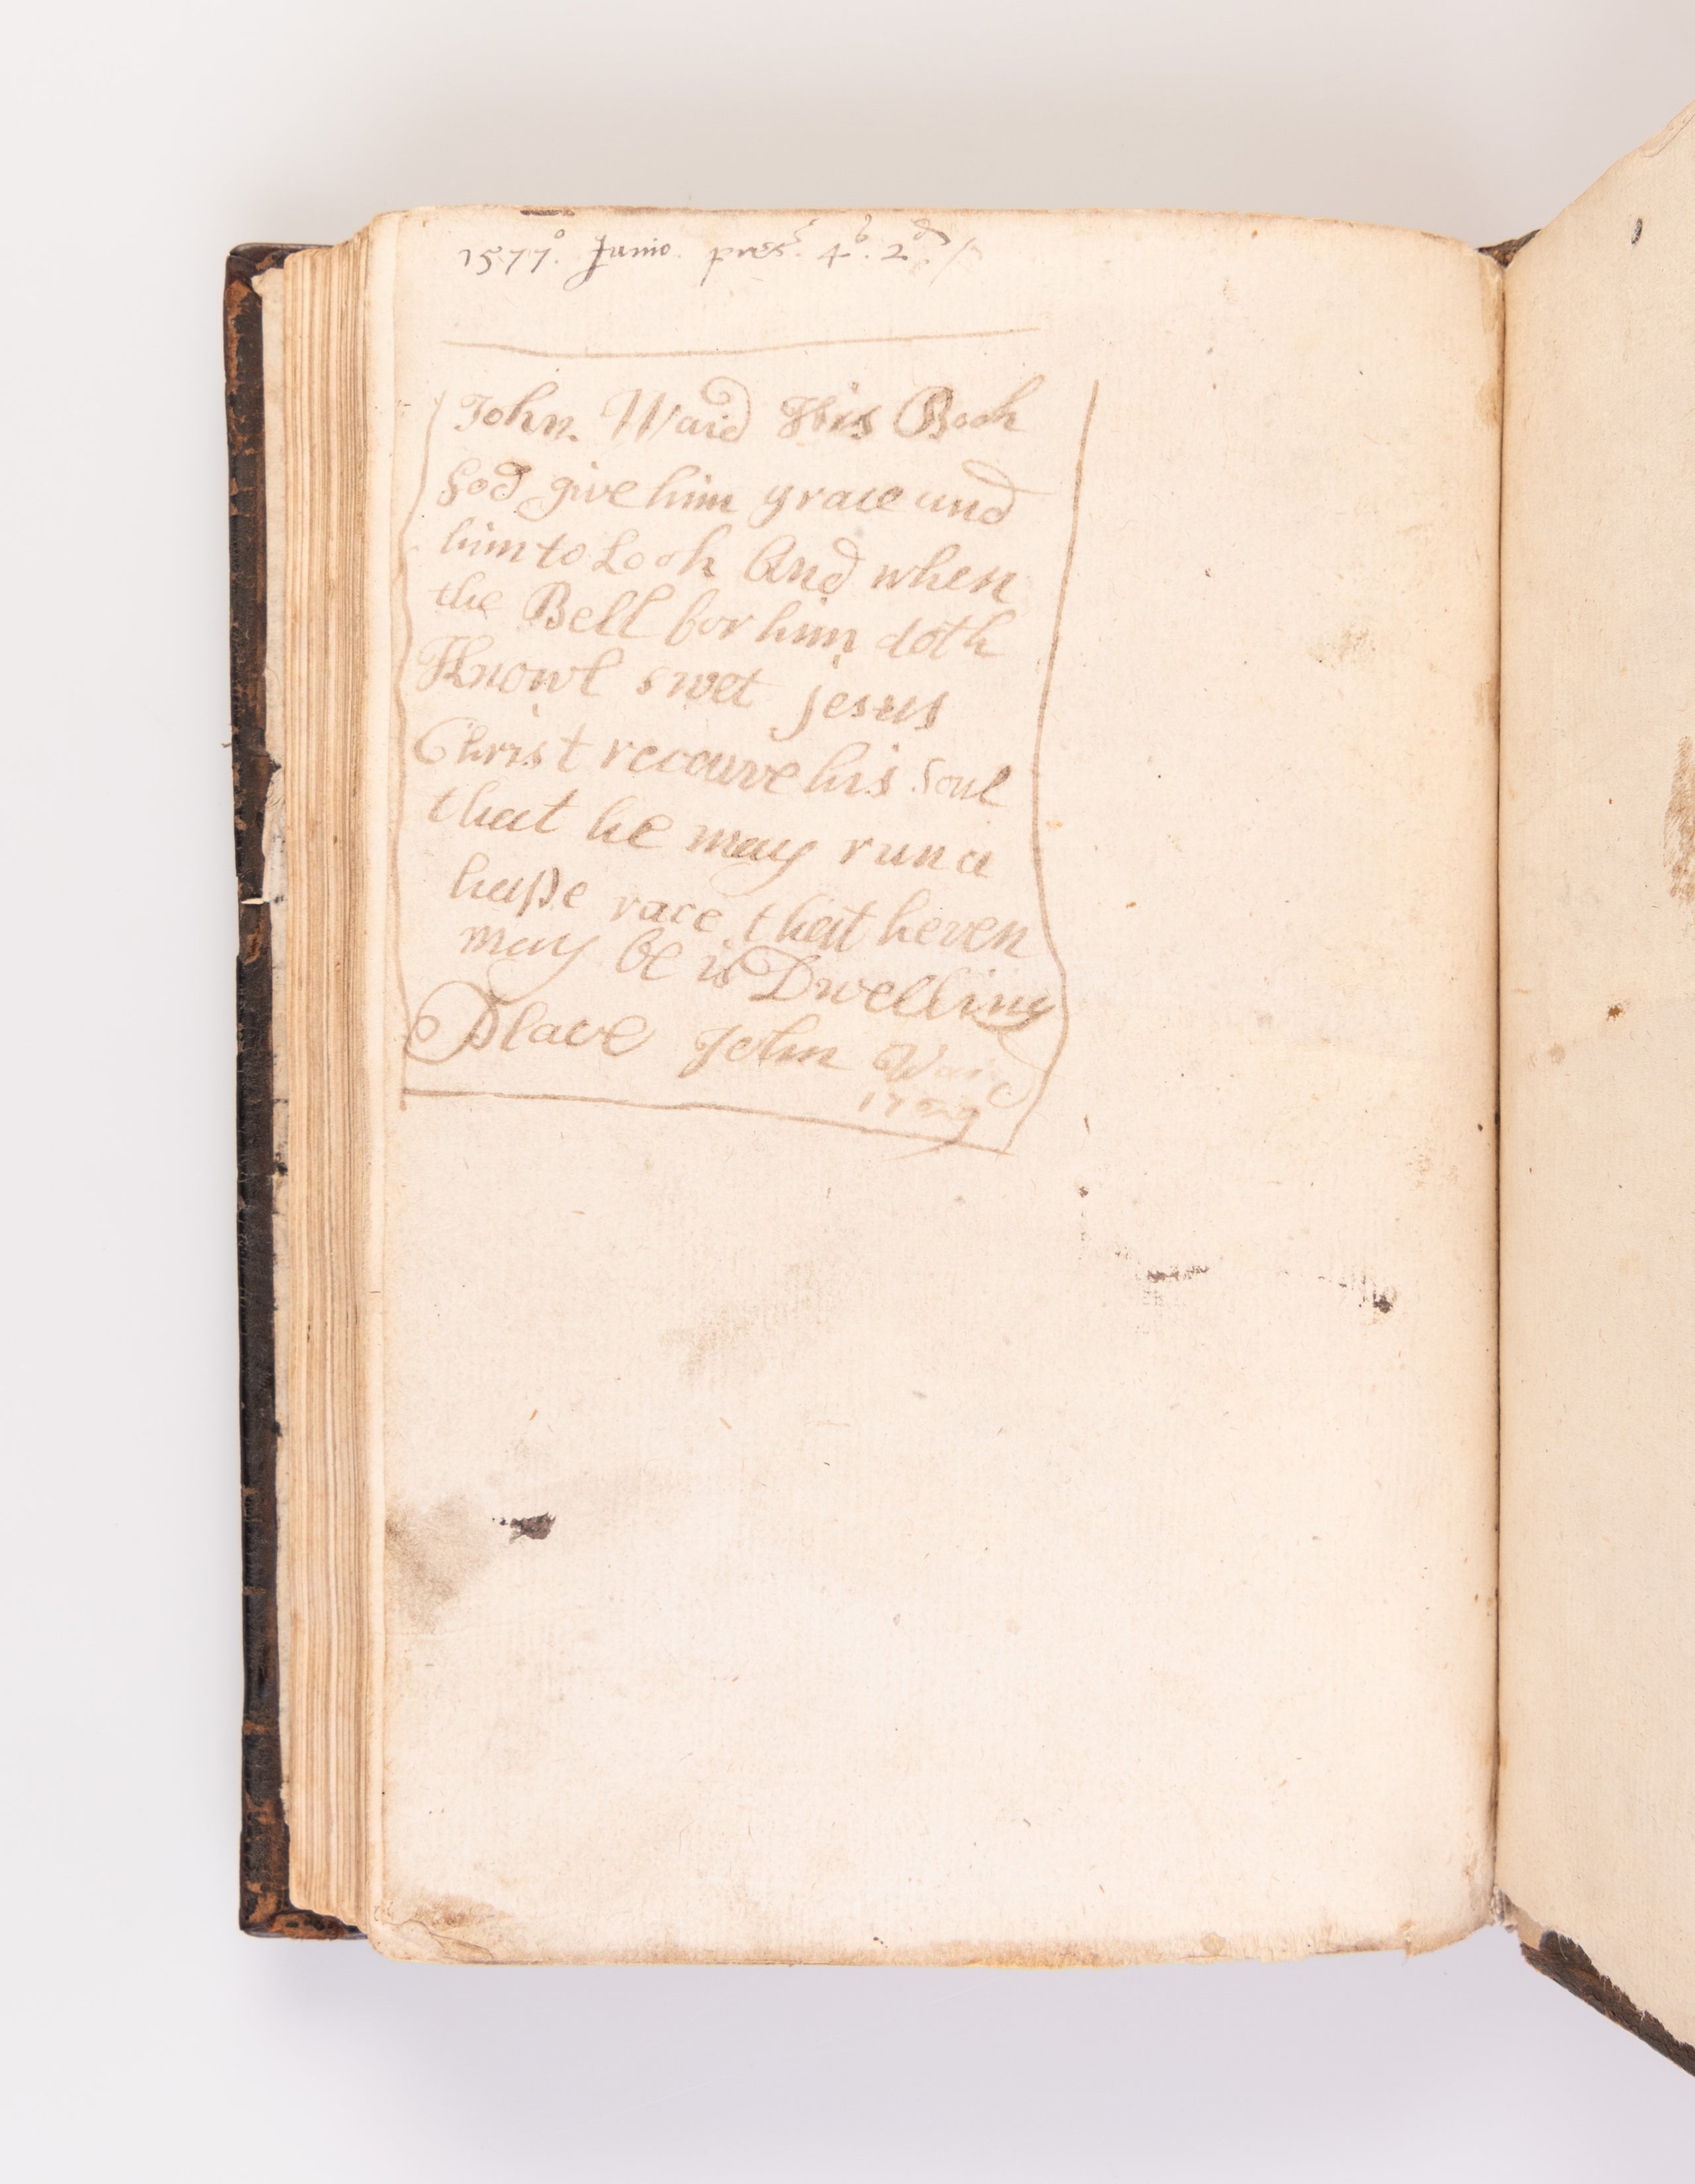 1577º. Junio. pres. 4s. 2d.
John Ward His Book
God give him grace and
him to Look And when
the Bell for him doth
Knowl swet jesus
Christ receive his soul
that he may run a
hape race that heven
may be is Dwelling
Place John Ward
1729